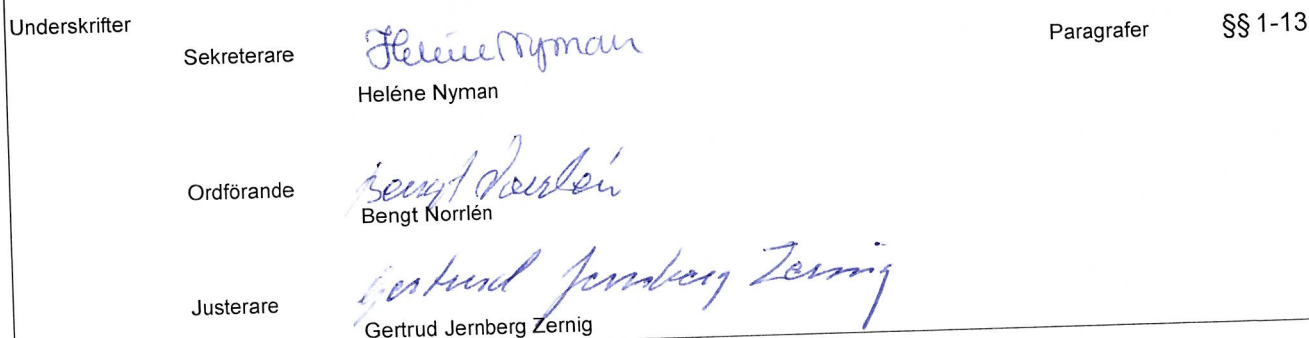 Underskrifter
Paragrafer §§ 1-13
Sekreterare Heléne Nyman
Heléne Nyman
Ordförande Bengt Norrlén
Bengt Norrlén
Justerare Gertrud Jernberg Zernig
Gertrud Jernberg Zernig